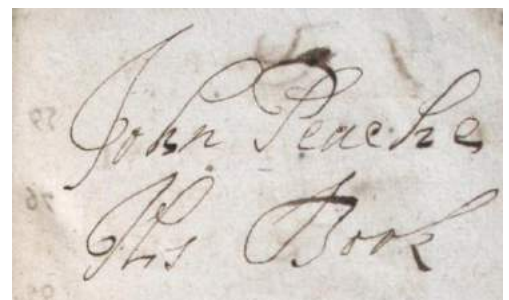 John Peache
His Book